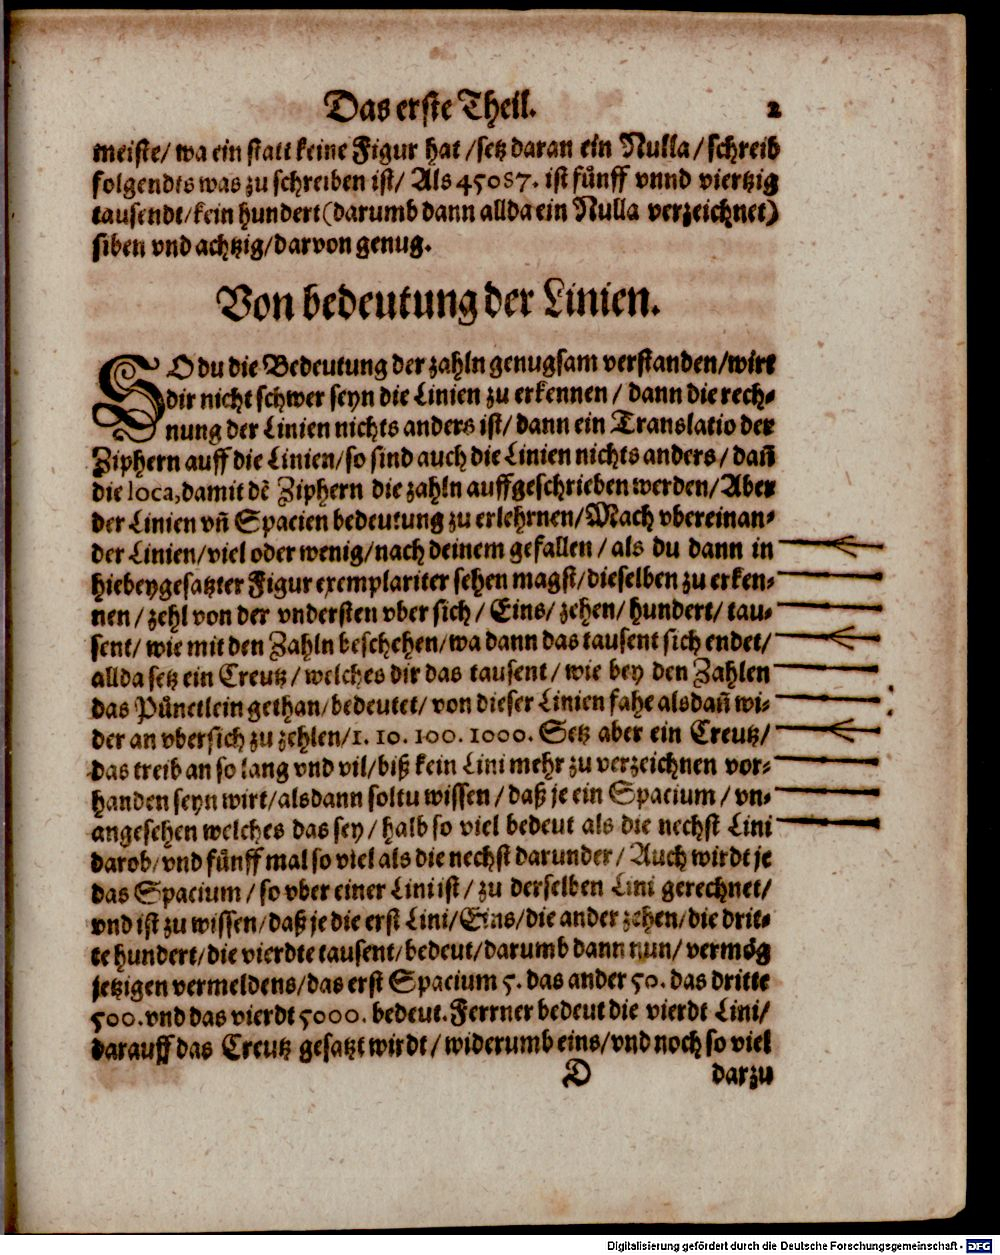 Das erste Theil. 2
meiste/ wa ein statt keine Figur hat / setz daran ein Nulla / schreib
folgendts was zu schreiben ist/ Als 45087. ist fünff vnnd viertzig
tausendt/ kein hundert (darumb dann allda ein Nulla verzeichnet)
siben vnd achtzig/ darvon genug.
Von bedeutung der Linien.
SO du die Bedeutung der zahln genugsam verstanden/ wirt
dir nicht schwer seyn die Linien zu erkennen / dann die rech-
nung der Linien nichts anders ist/ dann ein Translatio der
Ziphern auff die Linien/ so sind auch die Linien nichts anders / dañ
die loca, damit dẽ Ziphern die zahln auffgeschrieben werden/ Aber
der Linien vñ Spacien bedeutung zu erlehrnen/ Mach vbereinan-
der Linien/ viel oder wenig/ nach deinem gefallen / als du dann in
hiebeygesatzter Figur exemplariter sehen magst/ dieselben zu erken-
nen / zehl von der vndersten vber sich / Eins/ zehen/ hundert/ tau-
sent/ wie mit den Zahln beschehen/ wa dann das tausent sich endet/
allda setz ein Creutz / welches dir das tausent / wie bey den Zahlen
das Pünctlein gethan/ bedeutet/ von dieser Linien fahe alsdañ wi-
der an vbersich zu zehlen/ 1. 10. 100. 1000. Setz aber ein Creutz/
das treib an so lang vnd vil/ biß kein Lini mehr zu verzeichnen vor-
handen seyn wirt/ alsdann soltu wissen / daß je ein Spacium / vn-
angesehen welches das sey / halb so viel bedeut als die nechst Lini
darob/ vnd fünff mal so viel als die nechst darunder / Auch wirdt je
das Spacium / so vber einer Lini ist / zu derselben Lini gerechnet/
vnd ist zu wissen/ daß je die erst Lini/ Eins/ die ander zehen/ die drit-
te hundert/ die vierdte tausent/ bedeut/ darumb dann nun/ vermög
jetzigen vermeldens/ das erst Spacium 5. das ander 50. das dritte
500. vnd das vierdt 5000. bedeut. Ferrner bedeut die vierdt Lini/
darauff das Creutz gesatzt wirdt / widerumb eins/ vnd noch so viel
D darzu
Digitalisierung gefördert durch die Deutsche Forschungsgemeinschaft - DFG